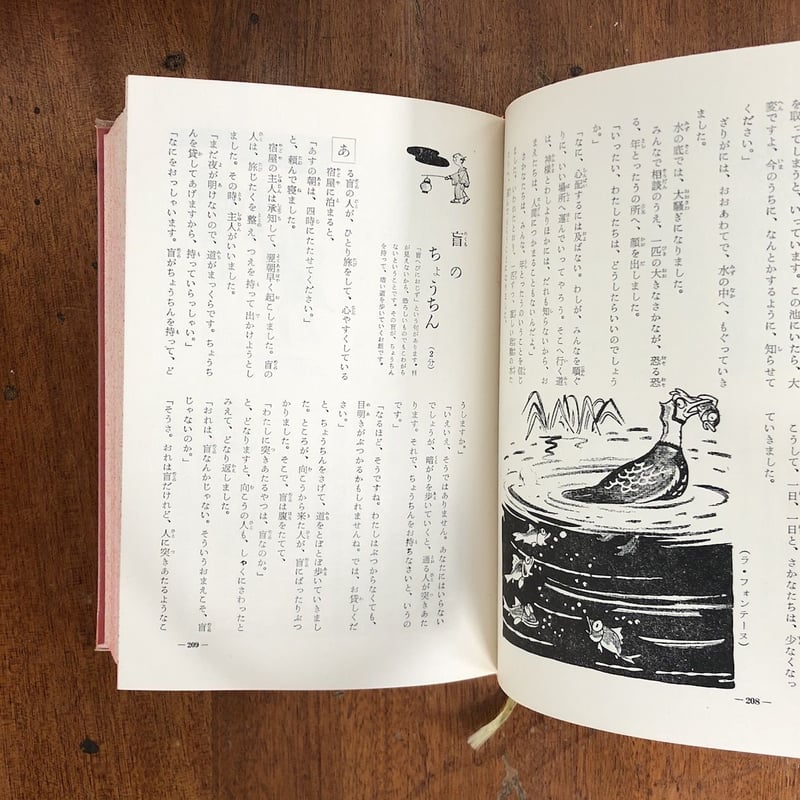 を取ってしまうと、いっています。この池にいたら、大
変ですよ、今のうちに、なんとかするように、知らせて
ください。」
ざりがには、おおあわてで、水の中へ、もぐっていき
ました。
水の底では、大騒ぎになりました。
みんなで相談のうえ、一匹の大きなさかなが、恐る恐
る、年とったうの所へ、顔を出しました。
「いったい、わたしたちは、どうしたらいいのでしょう
か。」
「なに、心配するには及ばない。わしが、みんなを順ぐ
りに、いい場所へ運んでいってやろう。そこへ行く道
は、神様とわしよりほかには、だれも知らないから、お
まえたちは、人間につかまることもないんだよ。」
さかなたちは、みんな、年とったうのいうことを信じ
こうして、一日、一日と、さかなたちは、少なくなっ
ていきました。
(ラ・フォンテーヌ)
—208—
盲のちょうちん (2分)
「盲へびにおじず」という句があります。目
が見えないから、恐ろしいものでもこわがら
ないということです。その盲が、ちょうちん
を持って、暗い道を歩いていくお話です。
ある盲の人が、ひとり旅をして、心やすくしている
宿屋に泊まると、
「あすの朝は、四時にたたせてください。」
と、頼んで寝ました。
宿屋の主人は承知して、翌朝早く起こしました。盲の
人は、旅じたくを整え、つえを持って出かけようとし
ました。その時、主人がいいました。
「まだ夜が明けないので、道がまっくらです。ちょうち
んを貸してあげますから、持っていらっしゃい。」
「なにをおっしゃいます。盲がちょうちんを持って、ど
うしますか。」
「いえいえ、そうではありません。あなたにはいらない
でしょうが、暗がりを歩いていくと、通る人が突きあた
ります。それで、ちょうちんをお持ちなさいと、いうの
です。」
「なるほど、そうですね。わたしはぶつからなくても、
目明きがぶつかるかもしれませんね。では、お貸しくだ
さい。」
と、ちょうちんをさげて、道をとぼとぼ歩いていきまし
た。ところが、向こうから来た人が、盲にばったりぶつ
かりました。そこで、盲は腹をたてて、
「わたしに突きあたるやつは、盲なのか。」
と、どなりますと、向こうの人も、しゃくにさわったと
みえて、どなり返しました。
「おれは、盲なんかじゃない。そういうおまえこそ、盲
じゃないのか。」
「そうさ。おれは盲だけれど、人に突きあたるようなこ
—209—